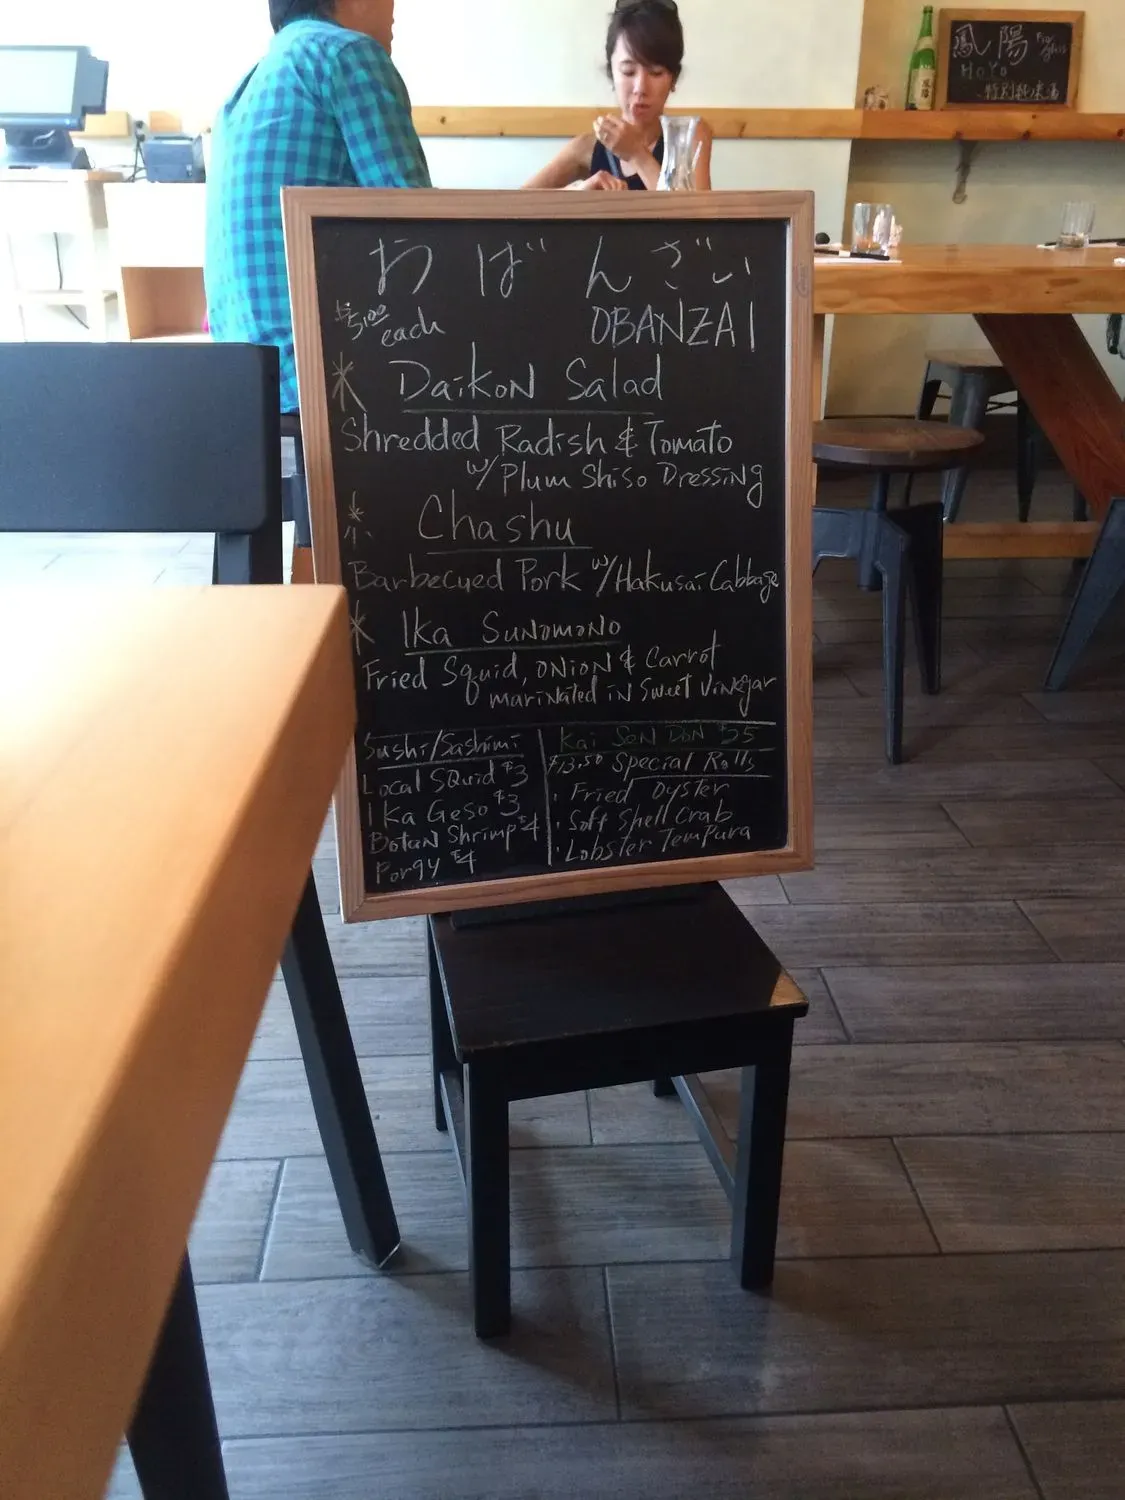 おばんざい
$5.00 each
OBANZAI
* Daikon Salad
Shredded Radish & Tomato
w/ Plum Shiso Dressing
* Chashu
Barbecued Pork w/ Hakusai Cabbage
* Ika Sunomono
Fried Squid, Onion & Carrot
marinated in Sweet Vinegar
Sushi/Sashimi
Local Squid $3
Ika Geso $3
Botan Shrimp $4
Porgy $4
Kai Sen Don $25
$13.50 Special Rolls
· Fried Oyster
· Soft Shell Crab
· Lobster Tempura
鳳陽
HoYo
特別純米酒